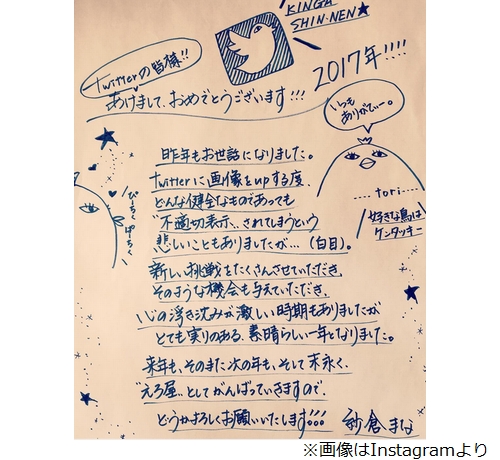 KINGA
SHIN-NEN★
Twitterの皆様!!
あけまして、おめでとうございます!!!
2017年!!!!
いつも
ありがてぃー。
昨年もお世話になりました。
Twitterに画像をupする度、
どんな健全なものであっても
“不適切表示„されてしまうという
悲しいこともありましたが…(白目)。
新しい挑戦をたくさんさせていただき、
そのような機会も与えていただき、
心の浮き沈みが激しい時期もありましたが
とても実りのある、素晴らしい一年となりました。
来年も、そのまた次の年も、そして末永く、
“えろ屋„としてがんばっていきますので、
どうかよろしくお願いいたします!!!
紗倉まな
....tori....
好きな鳥は
ケンタッキー
ぴーちく
ぱーちく
※画像はInstagramより